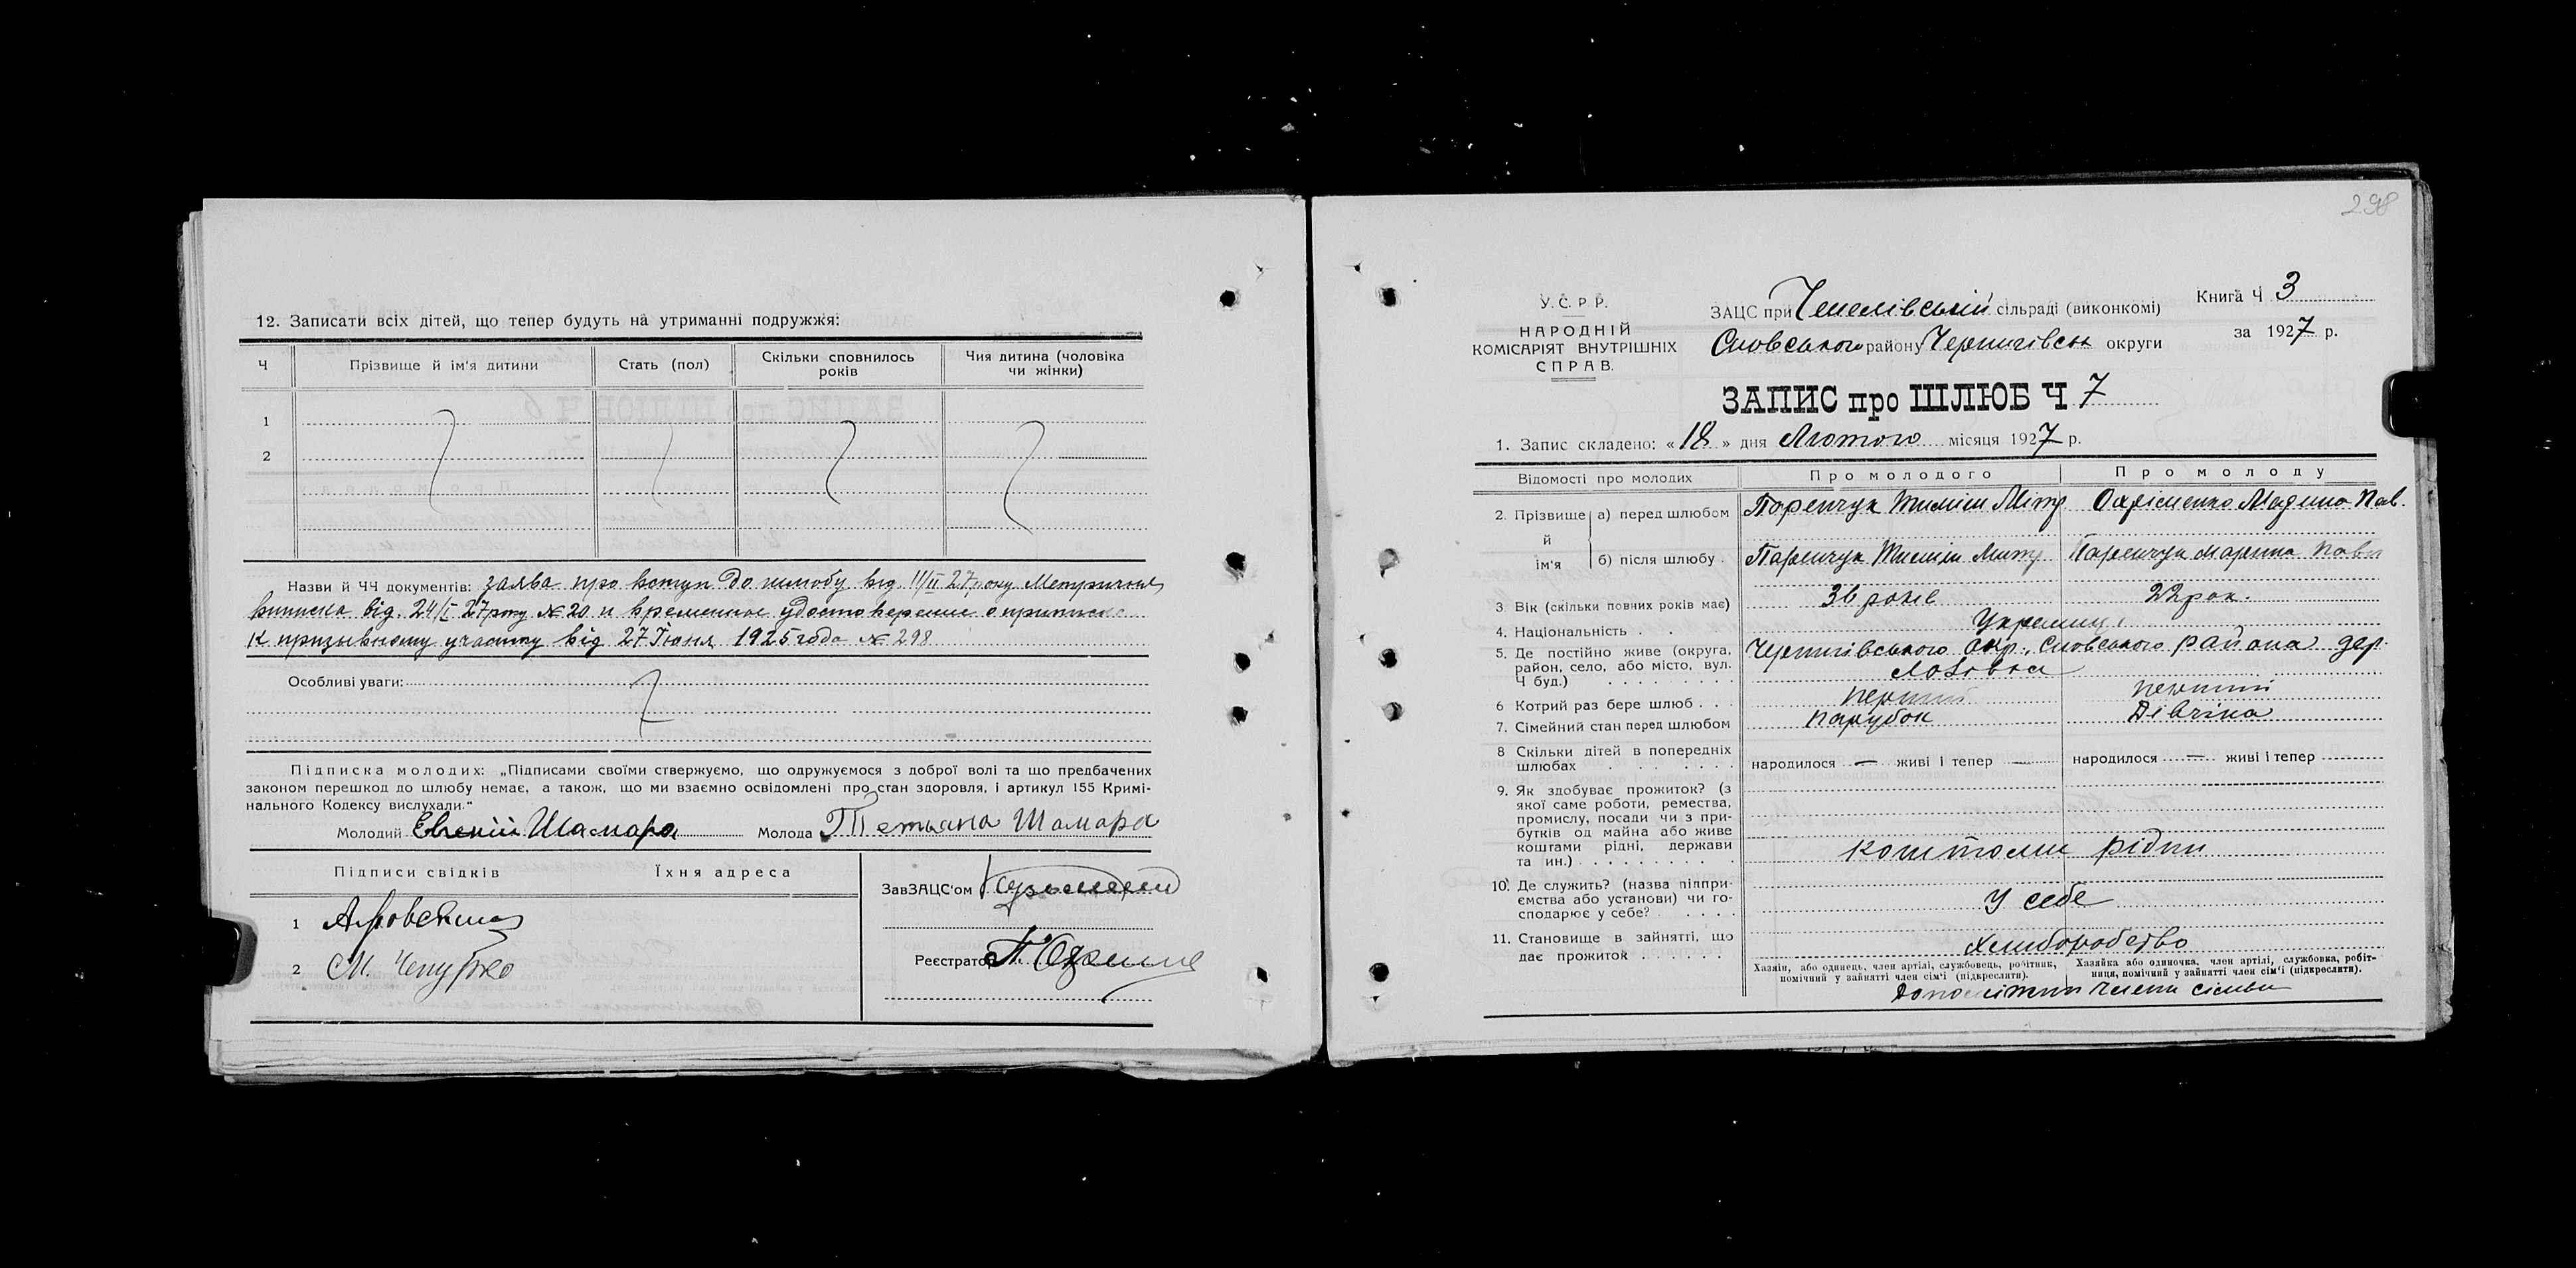 12. Записати всіх дітей, що тепер будуть на утриманні подружжя:
Ч
Прізвище й ім'я дитини
Стать (пол)
Скільки сповнилось років
Чия дитина (чоловіка чи жінки)
1
2
Назви й ЧЧ документів: заява про вступ до шлюбу від 11/II 27 року Метрична
виписка від 24/I 27 року № 20 и временное удостоверение о приписке
к призывному участку від 27 Июня 1925 года № 298
Особливі уваги:
Підписка молодих: „Підписами своїми ствержуємо, що одружуємося з доброї волі та що предбачених
законом перешкод до шлюбу немає, а також, що ми взаємно освідомлені про стан здоровля, і артикул 155 Кримі-
нального Кодексу вислухали."
Молодий Евгений Шамара Молода Тетьяна Шамара
Підписи свідків Їхня адреса
1
2 М. Чепурко
ЗавЗАЦС'ом
Реєстратор
298
У. С. Р. Р.
НАРОДНІЙ
КОМІСАРІЯТ ВНУТРІШНІХ
СПРАВ.
ЗАЦС при Чепелівській сільраді (виконкомі)
Сновського району Чернигівськ округи
Книга Ч 3
за 1927 р.
ЗАПИС про ШЛЮБ Ч 7
1. Запис складено: « 18 » дня Лютого місяця 1927 р.
Відомості про молодих
Про молодого
Про молоду
2. Прізвище й ім'я
а) перед шлюбом Паренчук Тиміш Павл.
б) після шлюбу Паренчук Тиміш Паренчук Марина Павл
3 Вік (скільки повних років має) 36 років 22 рок.
4. Національність Украинці
5. Де постійно живе (округа,
район, село, або місто, вул.
Ч буд.)
Чернигівського окр., Сновського района дер.
6 Котрий раз бере шлюб перший перший
7. Сімейний стан перед шлюбом парубок Дівчина
8 Скільки дітей в попередніх
шлюбах
народилося — живі і тепер — народилося — живі і тепер —
9. Як здобуває прожиток? (з
якої саме роботи, ремества,
промислу, посади чи з при-
бутків од майна або живе
коштами рідні, держави
та ин.)
коштами рідни
10. Де служить? (назва підпри-
ємства або установи) чи го-
сподарює у себе?
у себе
11. Становище в зайнятті, що
дає прожиток
хлиборобство
Хазяїн, або одинець, член артілі, службовець, робітник,
помічний у зайнятті член сім'ї (підкреслити).
Хазяйка або одиночка, член артілі, службовка, робіт-
ниця, помічний у зайнятті член сім'ї (підкреслити).
допомітни члени сімьи